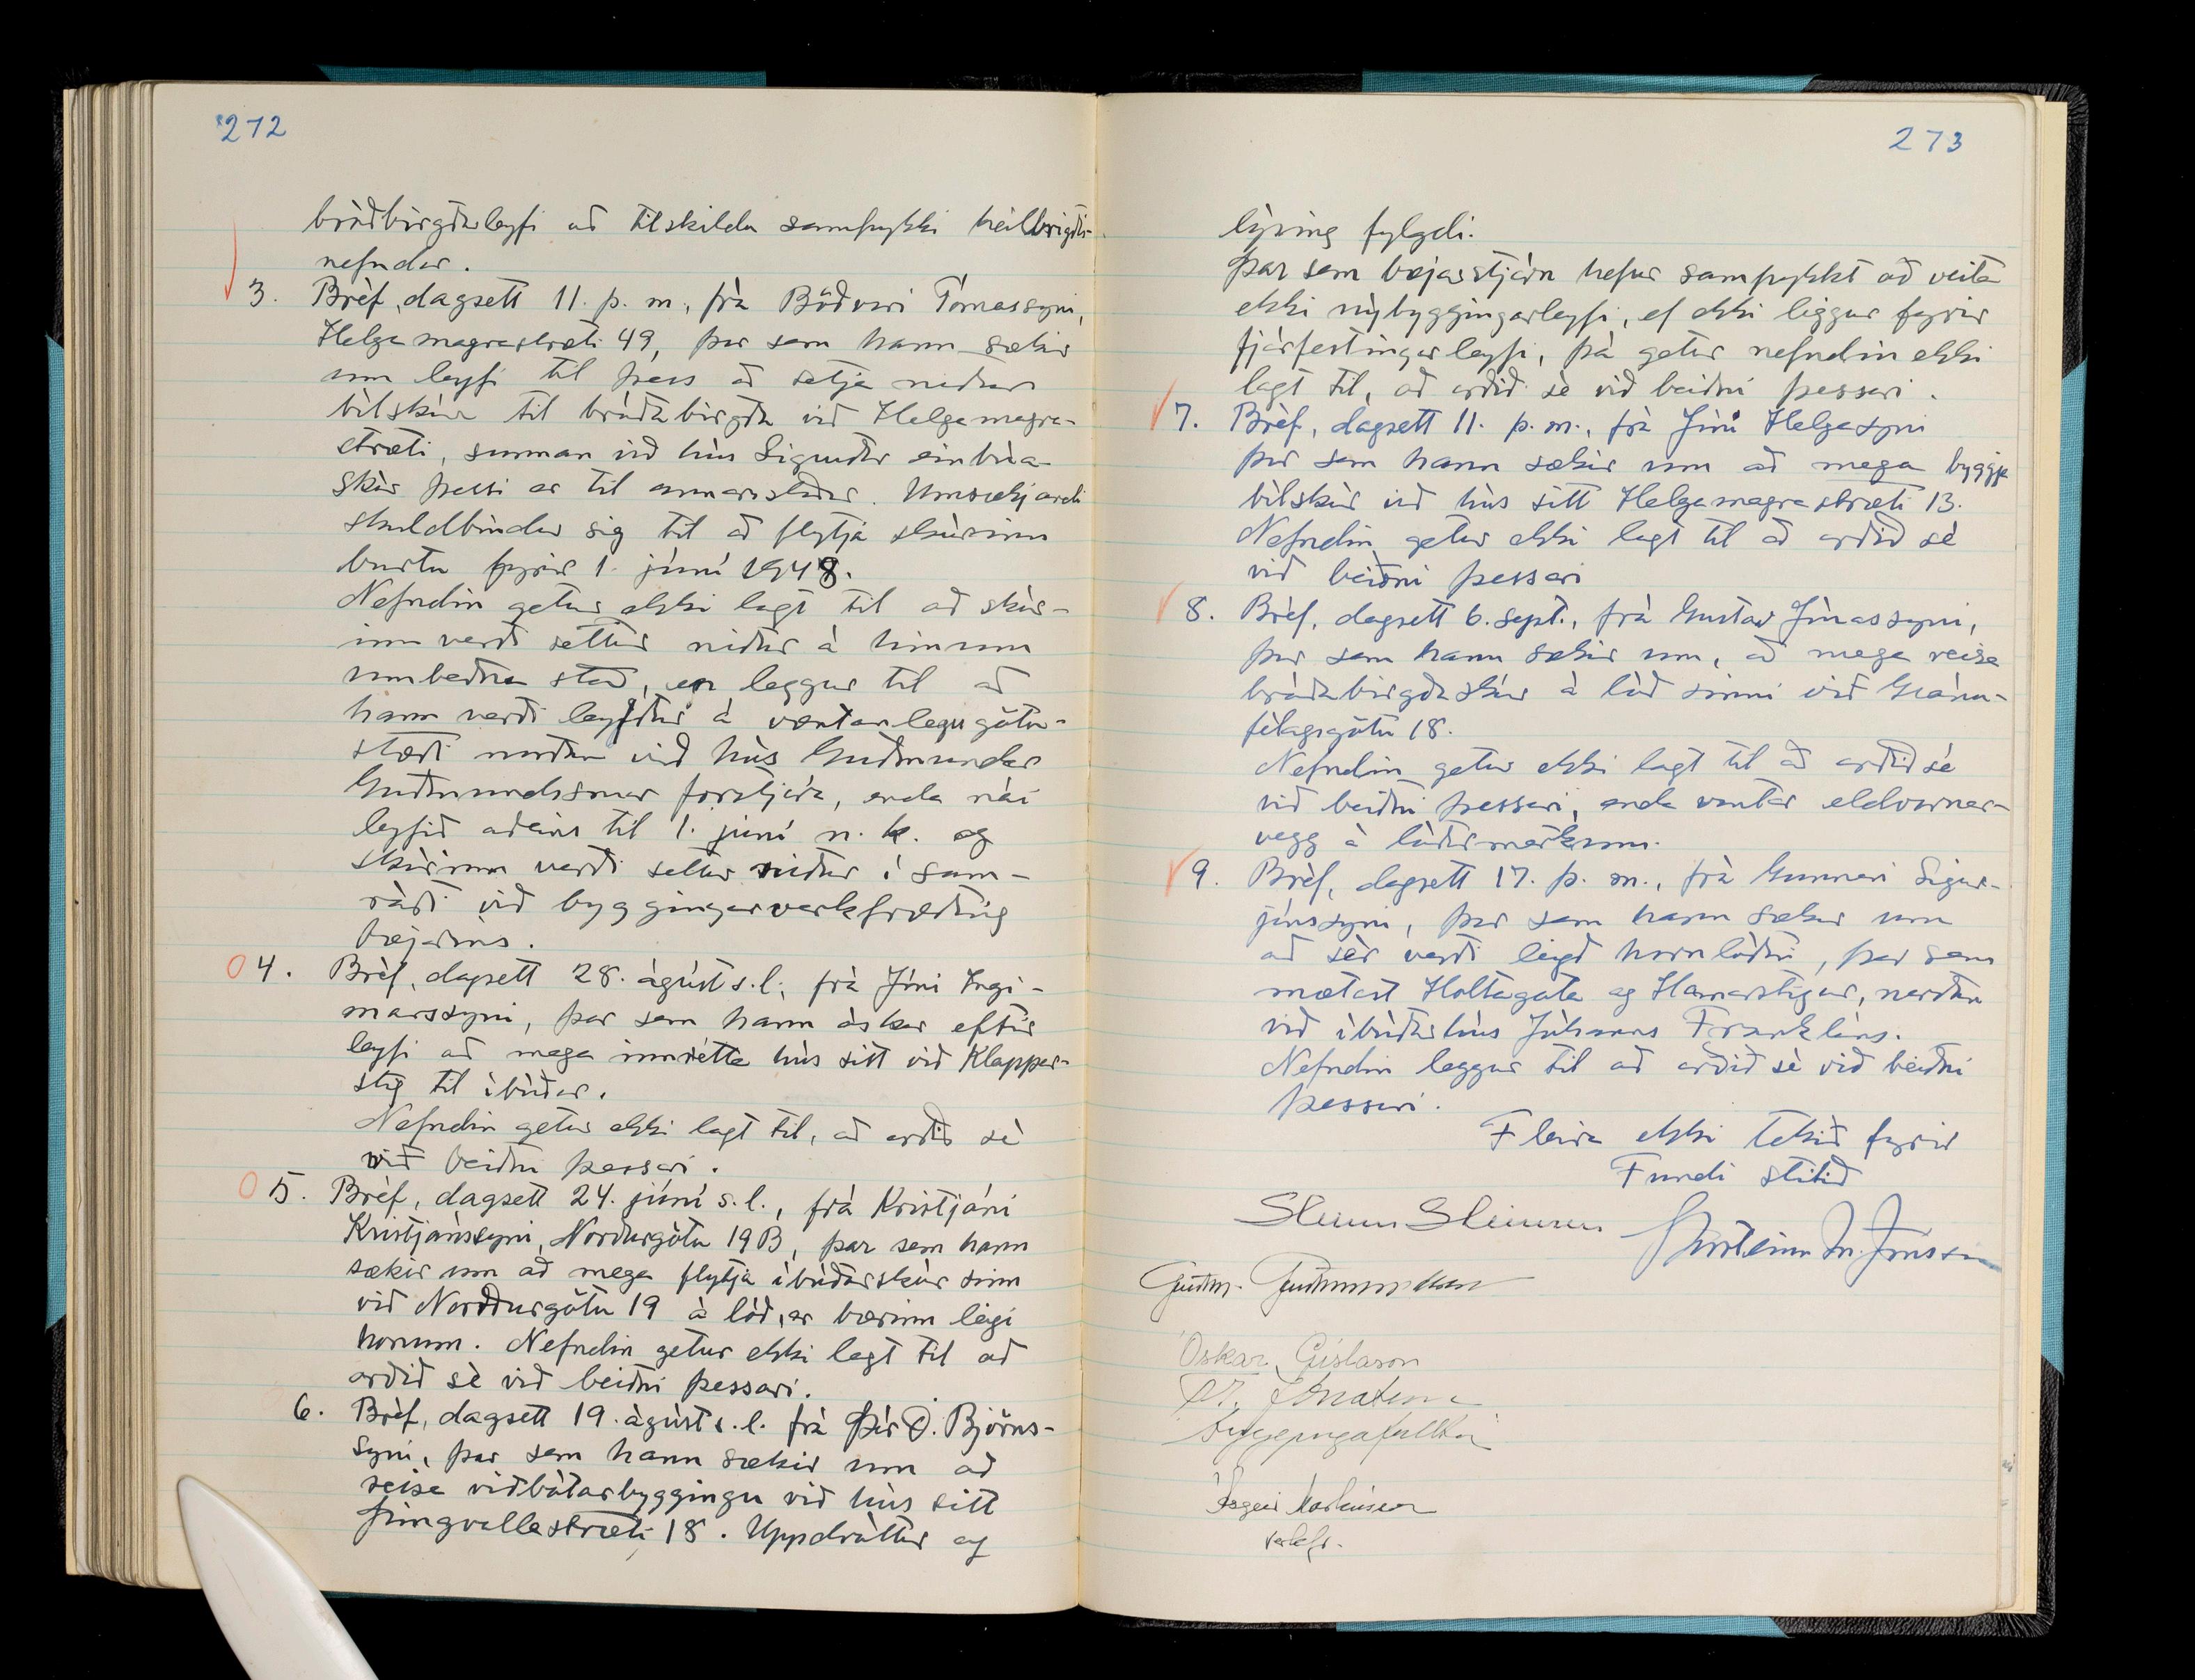 272
bráðbirgðaleyfi að tilskildu samþykki heilbrigðis-
nefndar.
3. Bréf, dagsett 11. þ. m., frá Böðvari Tómassyni,
Helgamagrastræti 49, þar sem hann sækir
um leyfi til þess að setja niður
bílskúr til bráðabirgða við Helgamagra-
stræti, sunnan við hús Sigurðar en búa-
skúr þessi er til annarsstaðar. Umsækjandi
skuldbindur sig til að flytja skúrinn
burtu fyrir 1. júní 1948.
Nefndin getur ekki lagt til að skúr-
inn verði settur niður á hinum
umbeðna stað, en leggur til að
hann verði leyfður á væntanlegu götu-
stæði norðan við hús Guðmundar
Guðmundssonar forstjóra, enda nái
leyfið aðeins til 1. júní n. k. og
skúrinn verði settur niður í sam-
ráði við byggingarverkfræðing
bæjarins.
4. Bréf, dagsett 28. ágúst s.l., frá Jóni Ingi-
marssyni, þar sem hann óskar eftir
leyfi að mega innrétta hús sitt við Klappar-
stíg til íbúðar.
Nefndin getur ekki lagt til, að orðið sé
við beiðni þessari.
5. Bréf, dagsett 24. júní s.l., frá Kristjáni
Kristjánssyni, Norðurgötu 19B, þar sem hann
sækir um að mega flytja íbúðarskúr sinn
við Norðurgötu 19 á lóð, er bærinn leigi
honum. Nefndin getur ekki lagt til að
orðið sé við beiðni þessari.
6. Bréf, dagsett 19. ágúst s.l. frá Þór O. Björns-
syni, þar sem hann sækir um að
reisa viðbótarbyggingu við hús sitt
Þingvallastræti 18. Uppdráttur og
273
lýsing fylgdi.
Þar sem bæjarstjórn hefur samþykkt að veita
ekki nýbyggingarleyfi, ef ekki liggur fyrir
fjárfestingarleyfi, þá getur nefndin ekki
lagt til, að orðið sé við beiðni þessari.
7. Bréf, dagsett 11. þ. m., frá Jóni Helgasyni
þar sem hann sækir um að mega byggja
bílskúr við hús sitt Helgamagrastræti 13.
Nefndin getur ekki lagt til að orðið sé
við beiðni þessari
8. Bréf, dagsett 6. sept., frá Gustav Jónassyni,
þar sem hann sækir um, að mega reisa
bráðabirgðaskúr á lóð sinni við Gránu-
félagsgötu 18.
Nefndin getur ekki lagt til að orðið sé
við beiðni þessari, enda vantar eldvarnar-
vegg á lóðarmörkum.
9. Bréf, dagsett 17. þ. m., frá Gunnari Sigur-
jónssyni, þar sem hann sækir um
að sér verði leigð hornlóðin, þar sem
mætast Holtagata og Hamarstígur, norðan
við íbúðarhús Jóhanns Franklíns.
Nefndin leggur til að orðið sé við beiðni
þessari.
Fleira ekki tekið fyrir
Fundi slitið
Steinn Steinsen
Þorsteinn M. Jónsson
Guðm. Guðmundsson
Óskar Gíslason
byggingafulltrúi
Ásgeir Markússon
verkfr.